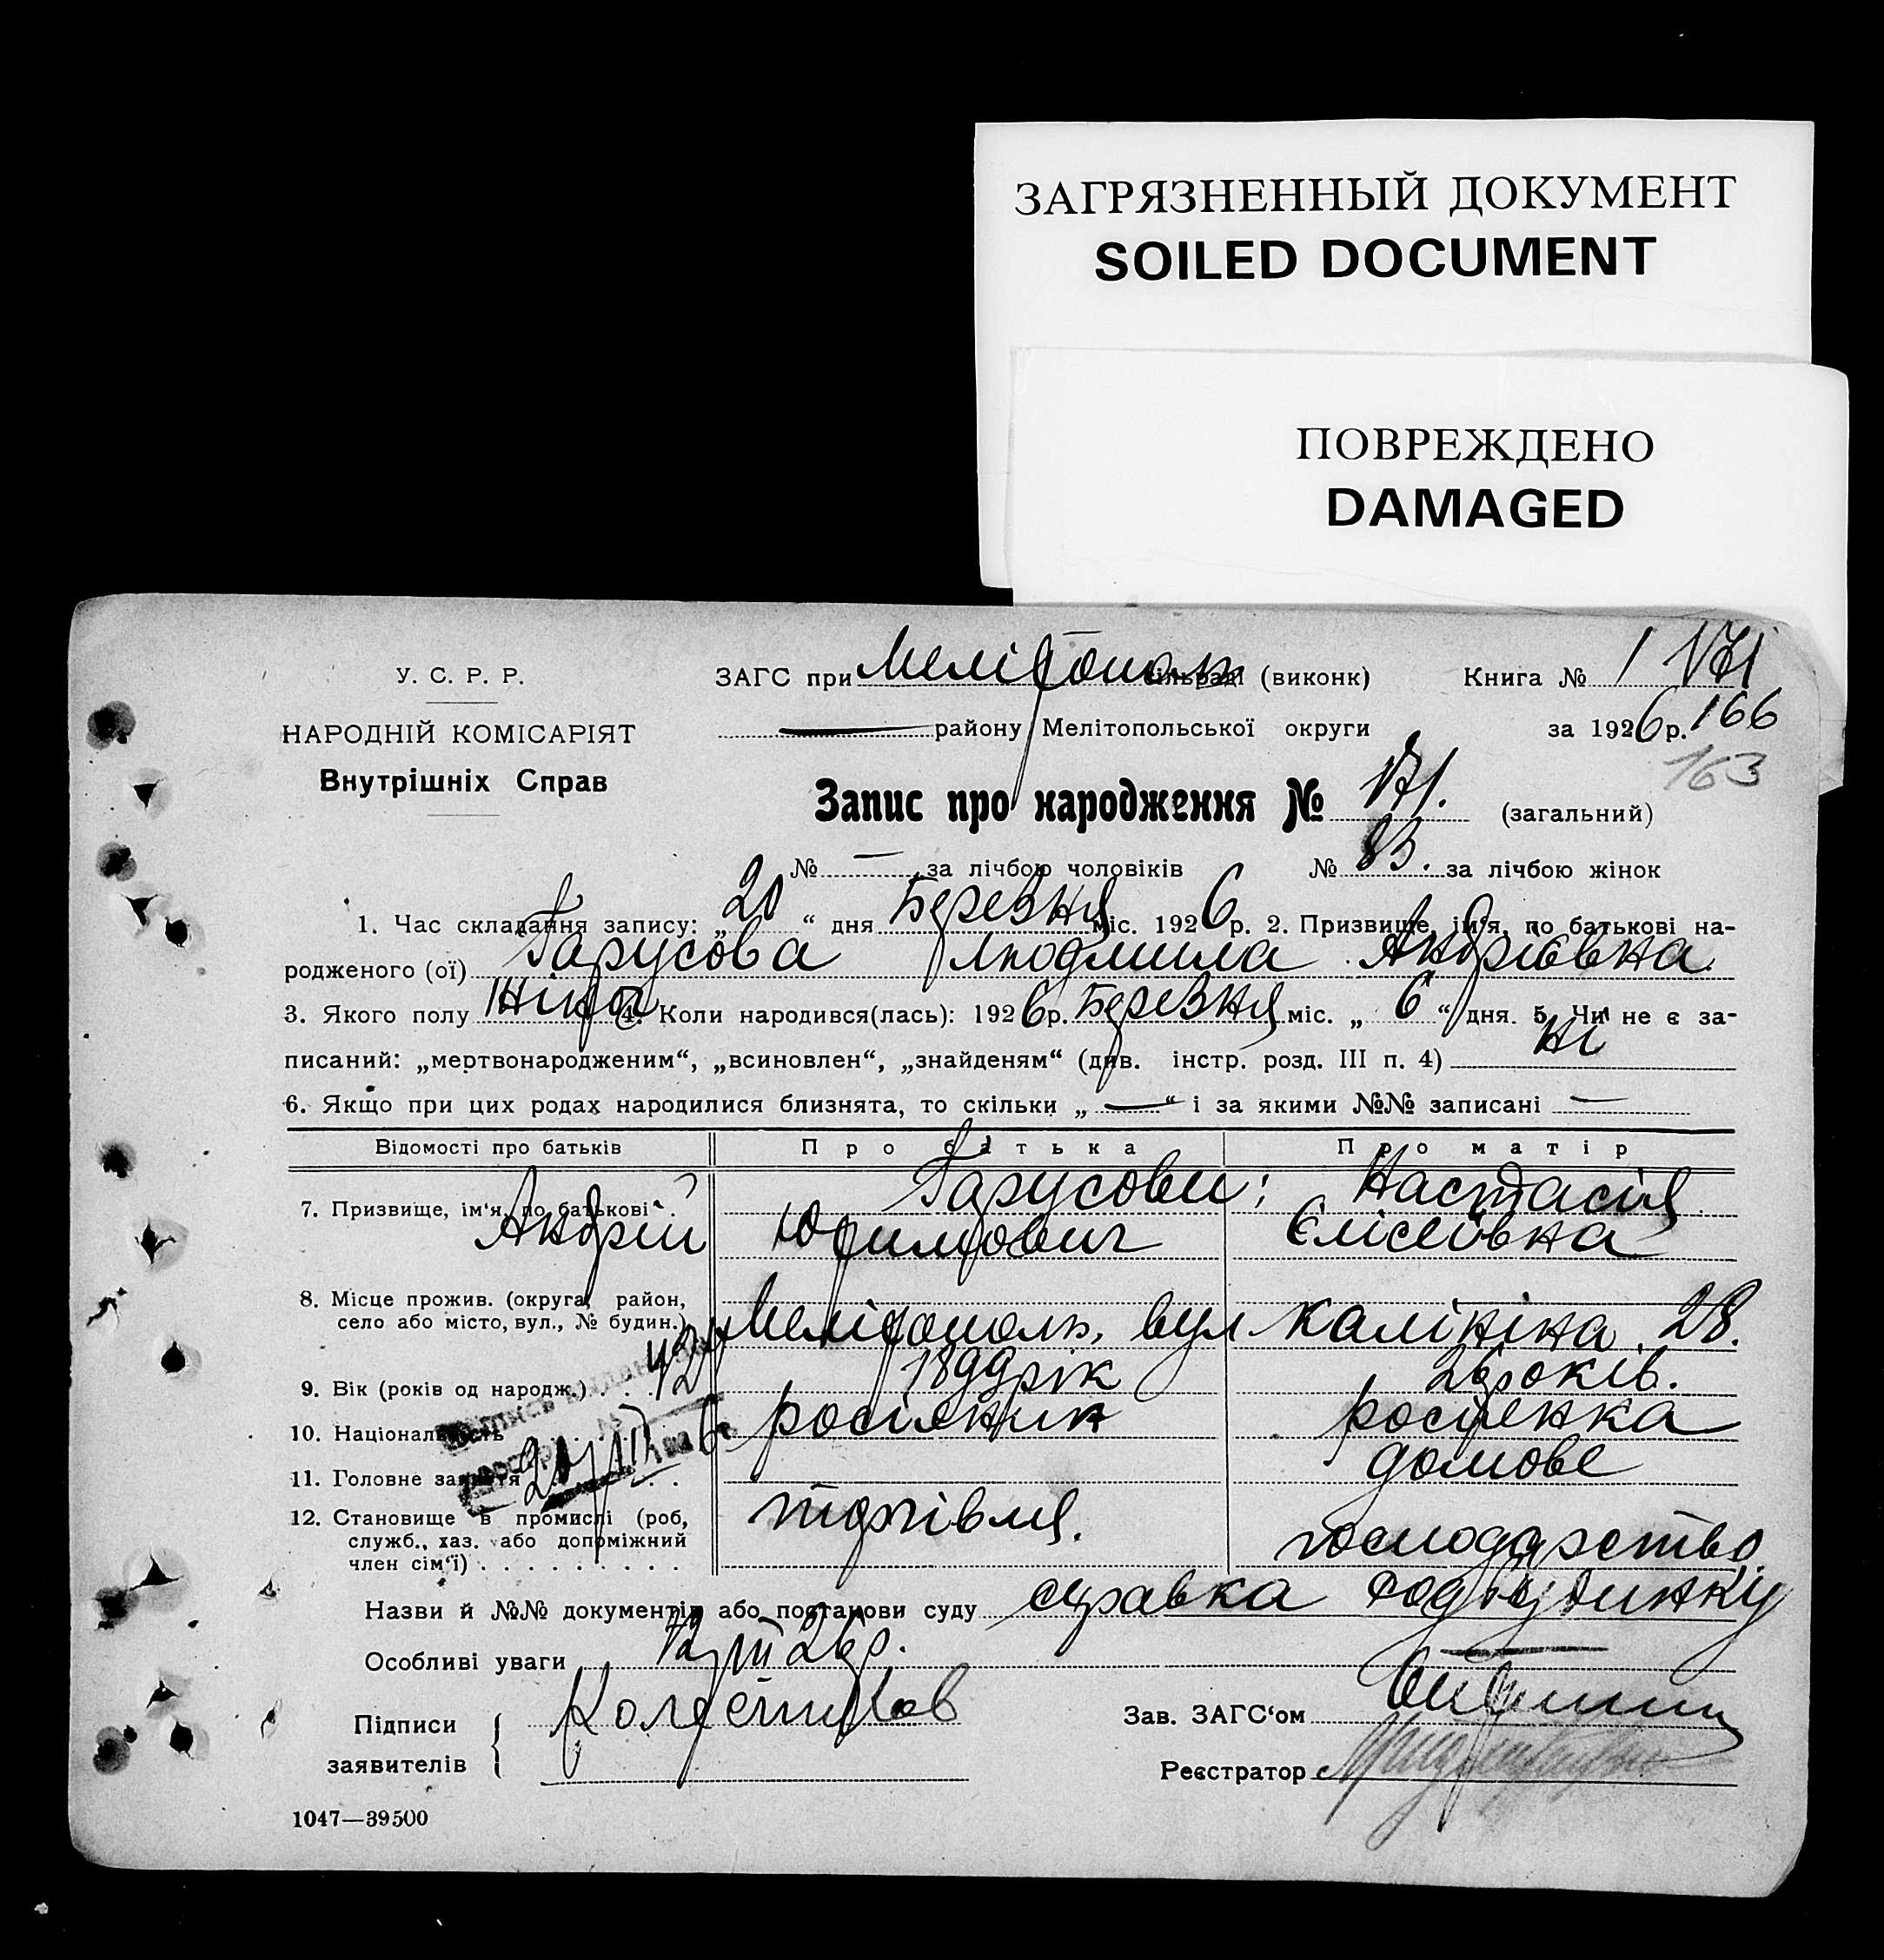 ЗАГРЯЗНЕННЫЙ ДОКУМЕНТ
SOILED DOCUMENT
ПОВРЕЖДЕНО
DAMAGED
У. С. Р. Р.
НАРОДНІЙ КОМІСАРІЯТ
Внутрішніх Справ
ЗАГС при Мелітополь (виконк) Книга № 1 171
району Мелітопольської округи за 1926 р. 166
163
Запис про народження № 171. (загальний)
№ — за лічбою чоловіків № 83. за лічбою жінок
1. Час складання запису: „ 20 “ дня Березня міс. 1926 р. 2. Призвище, ім'я, по батькові на-
родженого (ої) Гарусова Людмила Андріївна
3. Якого полу Жіноч 4. Коли народився(лась): 1926 р. Березня міс. „ 6 “ дня. 5. Чи не є за-
писаний: „мертвонародженим“, „всиновлен“, „знайденям“ (див. інстр. розд. III п. 4) ні
6. Якщо при цих родах народилися близнята, то скільки „ — “ і за якими №№ записані —
Відомості про батьків Про батька Про матір
7. Призвище, ім‘я, по батькові Гарусови: Настасія
Андрій Юхимович Єлісеївна
8. Місце прожив. (округа, район,
село або місто, вул., № будин.) Мелітополь, вул Калініна 28.
9. Вік (років од народж.) 1899 рік 26 років.
10. Національність росіянин росіянка
11. Головне заняття домове
12. Становище в промислі (роб, торгівля.
служб., хаз. або допоміжний господарство
член сім‘ї)
Назви й №№ документів або постанови суду справка
Особливі уваги 12/III 26 р. —
Підписи
заявителів
Зав. ЗАГС‘ом
Реєстратор
1047—39500